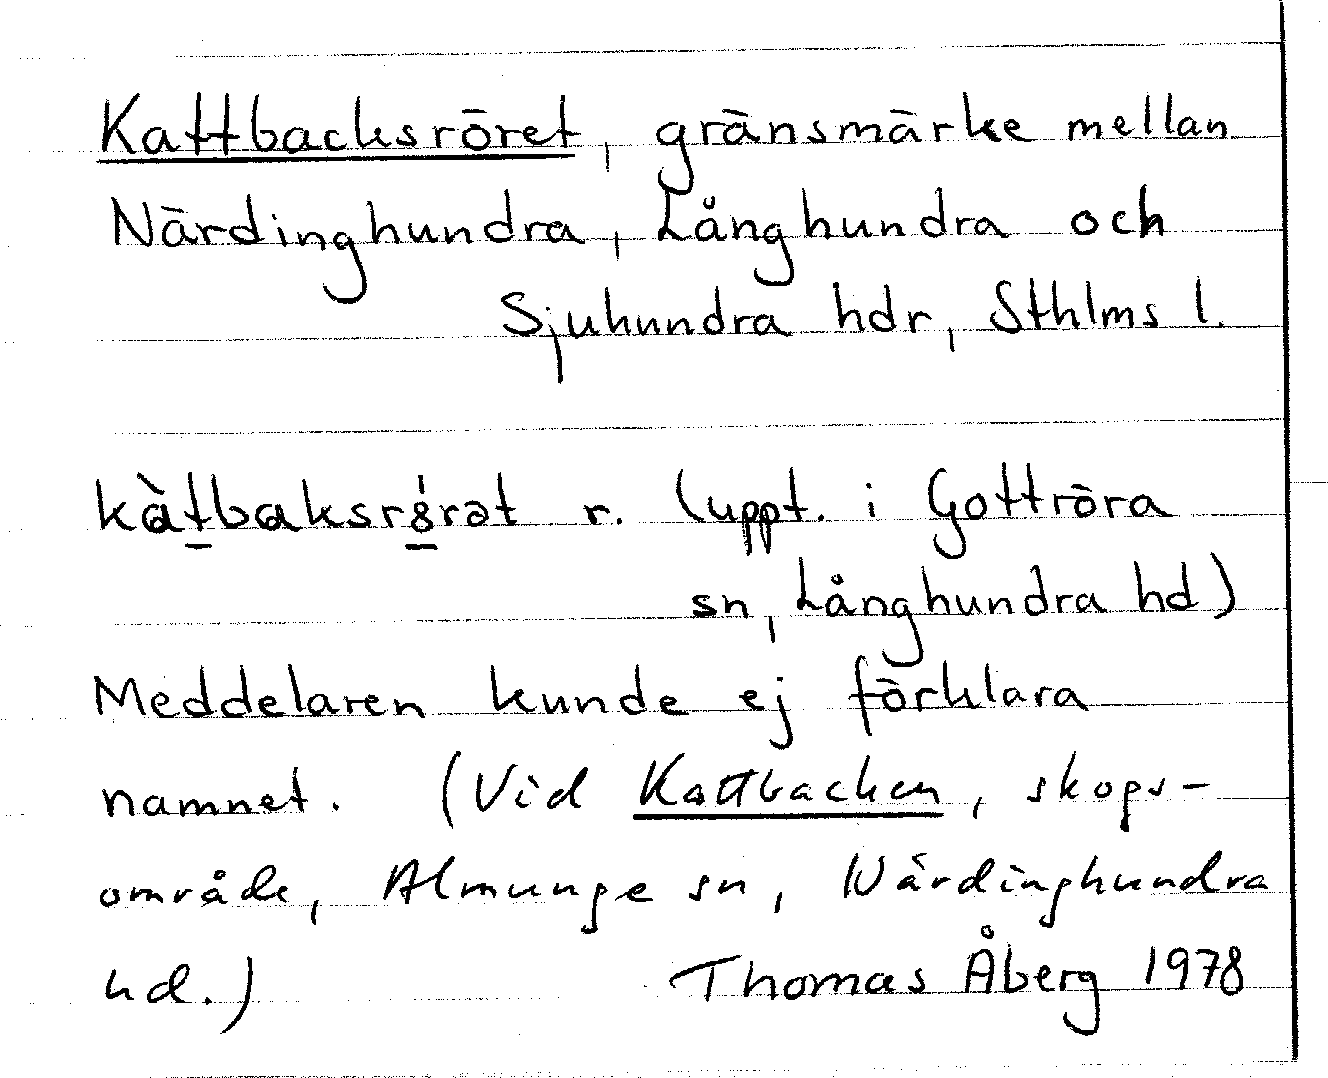 Kattbacksröret, gränsmärke mellan
Närdinghundra, Långhundra och
Sjuhundra hdr, Sthlms l.
r. (uppt. i Gottröra
sn, Långhundra hd)
Meddelaren kunde ej förklara
namnet. (Vid Kattbacken, skogs-
område, Almunge sn, Närdinghundra
hd.) Thomas Åberg 1978